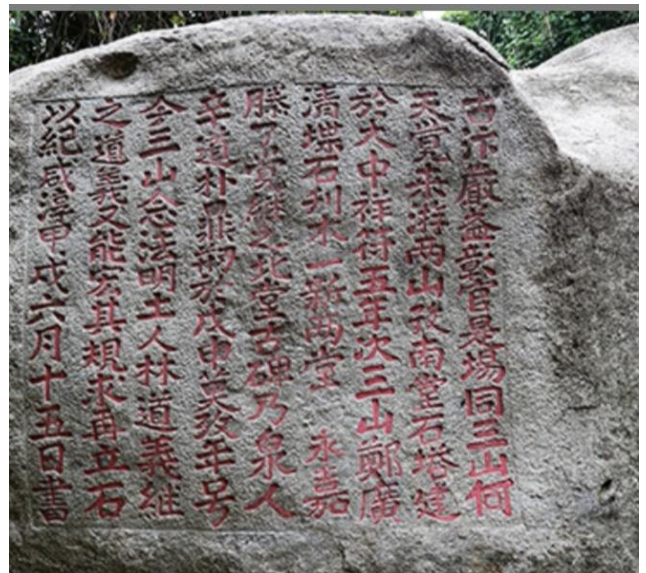 古汴嚴益彰官是場同三山何
天覺来游兩山攷南堂石塔建
於大中祥符五年次三山鄭廣
清堞石刊木一新兩堂 永嘉
滕了覺繼之北堂古碑乃泉人
辛道朴鼎刱於戊申莫攷年号
今三山念法明土人林道義継
之道義又能宏其規求再立石
以紀咸淳甲戌六月十五日書